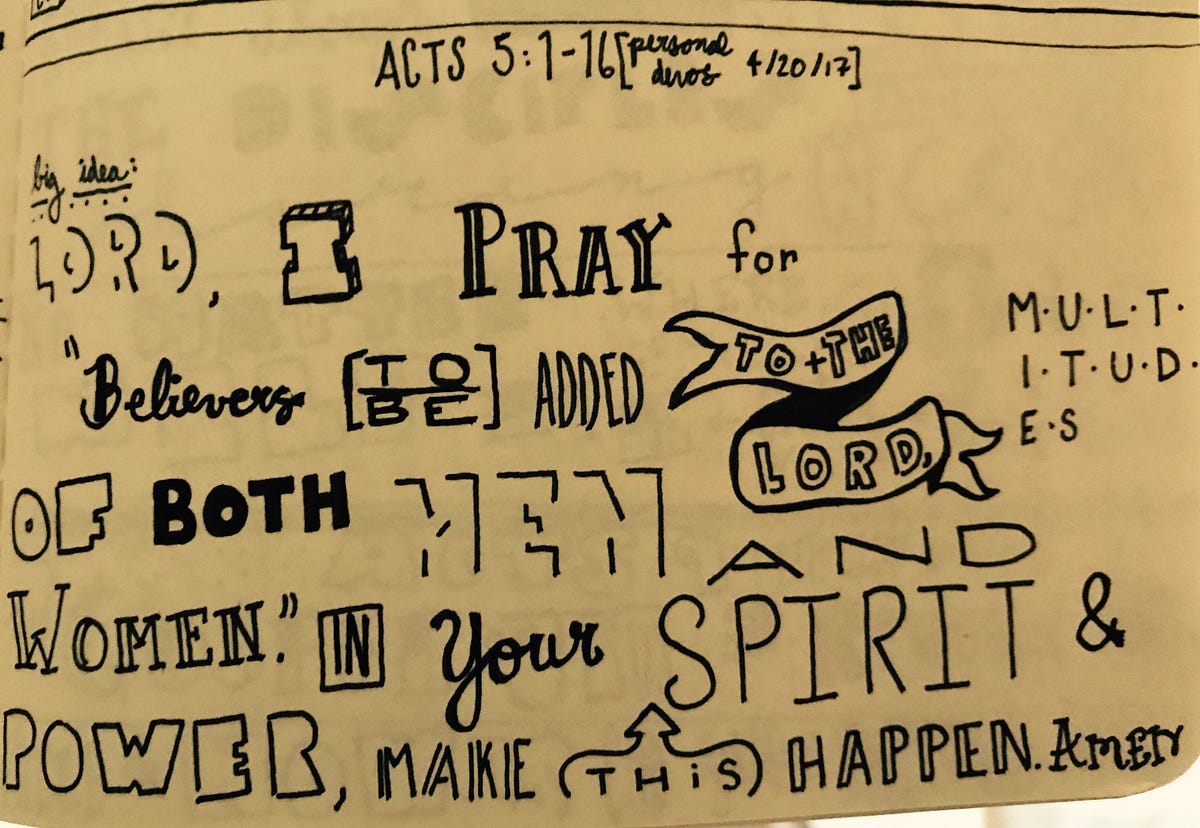 ACTS 5:1-16 [personal devos 4/20/17]
big idea:
LORD, I PRAY for
"Believers [TO BE] ADDED TO + THE LORD,
M·U·L·T·
I·T·U·D·
E·S
OF BOTH MEN AND
WOMEN." IN your SPIRIT &
POWER, MAKE (THiS) HAPPEN. Amen